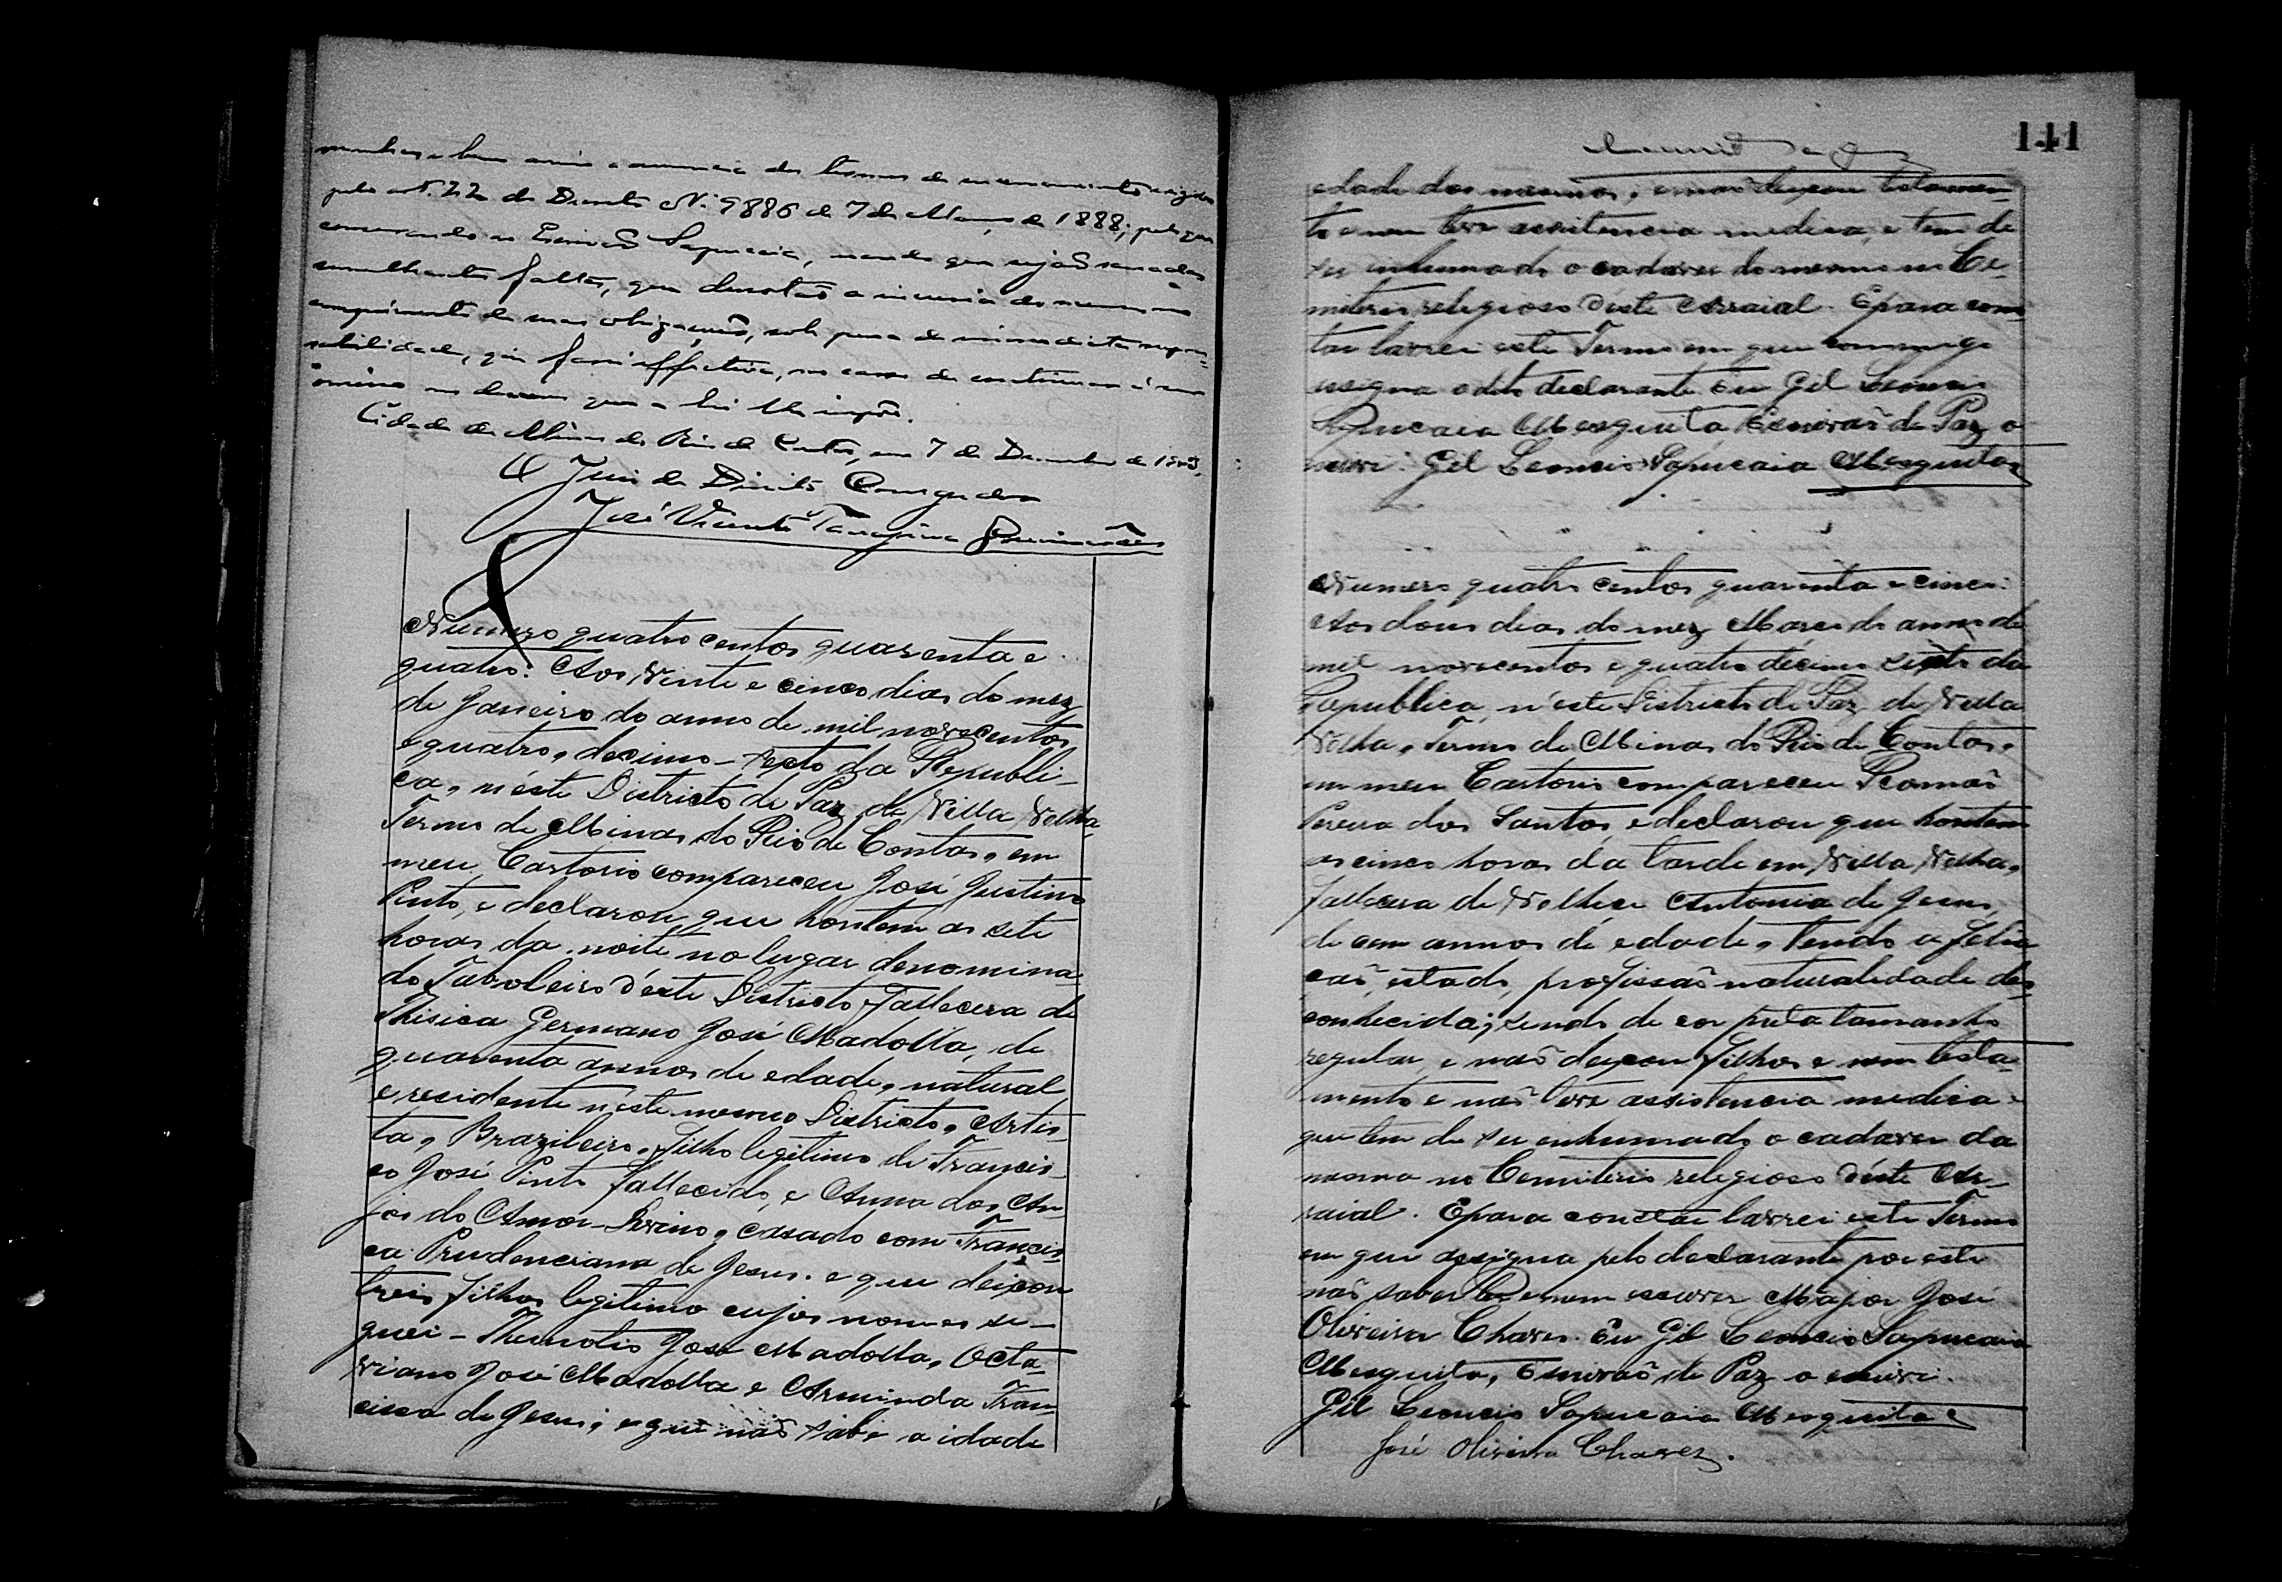 dos termos de encerramento exigidos
pelo art. 22 do Decreto Nº 9886 de 7 de Março de 1888; pelo que
Escrivão Sapucaia, mando que sejão sanadas
semelhantes faltas, que denotão a incuria do mesmo no
comprimento de suas obrigações, sob pena de immediata respon-
sabilidade, que farei effectiva, no caso de continuar a ser
omisso nos deveres que a lei lhe impõe.
Cidade de Minas do Rio de Contas, em 7 de Dezembro de
O Juiz de Direito
José Vicente Guimarães
Numero quatro centos quarenta e
quatro: Aos Vinte e cinco dias do mez
de Janeiro do anno de mil novecentos
e quatro, decimo-sexto da Republi-
ca, n'este Districto de Paz da Villa Velha
Termo de Minas do Rio de Contas, em
meu Cartorio compareceu José Justino
Pinto, e declarou que hontem as sete
horas da noite no lugar denomina-
do Taboleiro d'este Districto Fallecera de
Thisica Germano José Madolla, de
quarenta annos de edade, natural
e residente n'este mesmo Districto, Artis-
ta, Brazileiro, Filho legitimo de Francis-
co José Pinto fallecido, e Anna dos An-
jos do Amor-Divino, casado com Francis-
ca Prudenciana de Jesus. e que deixou
treis filhos legitimo cujos nomes se-
guei - Themotio José Madolla, Octa-
viano José Madolla e Arminda Fran-
cisca de Jesus; e que não sabe a idade
141
edade dos mesmos, e não deixou testamen-
to e nem teve assitencia medica, e tem de
ser enhumado o cadaver do mesmo no Ce-
miterio religioso d'este Arraial. E para cons-
tar lavrei este Termo em que commigo
assigna o dito declarante. Eu Gil Leoncio
Sapucaia Mesquita Escrivão de Paz o
escrevi. Gil Leoncio Sapucaia Mesquita
Numero quatro centos quarenta e cinco:
Aos dous dias do mez Março do anno de
mil novecentos e quatro decimo sexto da
Republica, n'este Districto de Paz de Villa
Velha, Termo de Minas do Rio de Contas,
em meu Cartorio compareceu Romão
Pereira dos Santos, e declarou que hontem
as cinco horas da tarde em Villa Velha,
fallecera de Velhice Antonia de Jesus,
de cem annos de edade, tendo a filia-
cão, estado, profissão naturalidade des-
conhecida; sendo de cor preta tamanho
regular, e não deixou filhos e nem testa-
mento e não teve assistencia medica e
que tem de ser enhumado o cadaver da
mesma no Cemiterio religioso d'este Ar-
raial. E para constar lavrei este Termo
em que assigna pelo declarante por este
não saber ler e nem escrever Major José
Oliveira Chaves. Eu Gil Leoncio Sapucaia
Mesquita, Escrivão de Paz o escrivi.
Gil Leoncio Sapucaia Mesquita
José Oliveira Chaves.